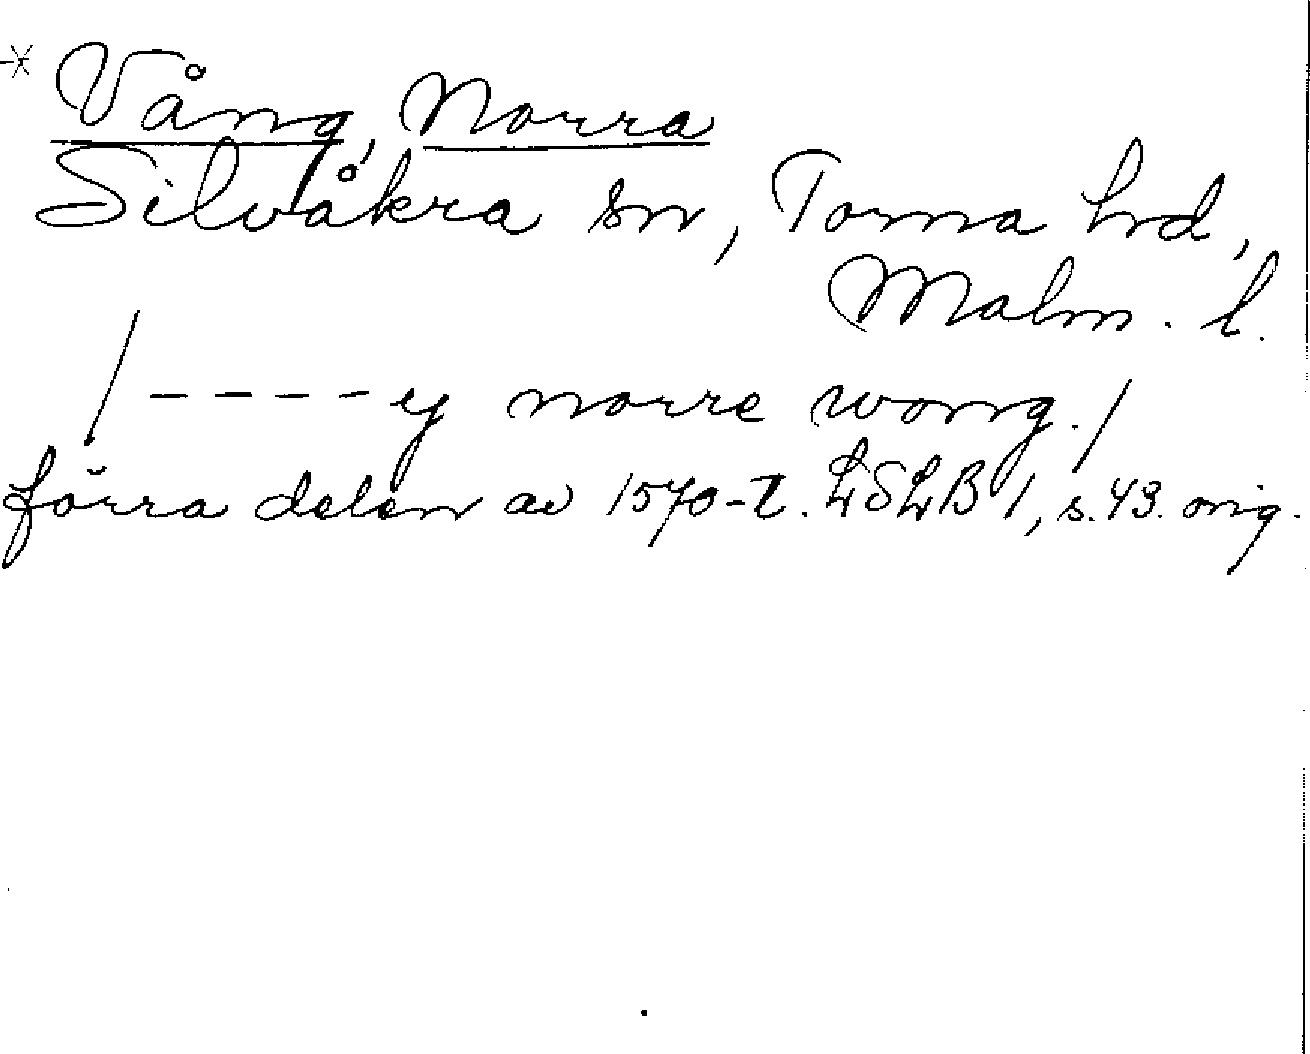 * Vång, Norra
Silvåkra sn, Torna hrd,
Malm. l.
/ ---- y norre wong. /
förra delen av 1570-t. LSLB 1, s. 43. orig.